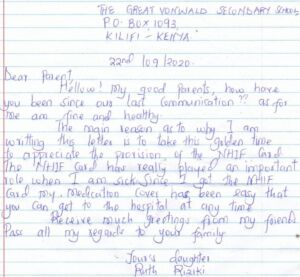 THE GREAT VONWALD SECONDARY SCHOOL
P.O. BOX 1093,
KILIFI - KENYA
22nd /09/2020.
Dear Parent,
Hellow! My good Parents, how have
you been since our last communication?? as for
me am fine and healthy.
The main reason as to why I am
writting this letter is to take this golden time
to appreciate the provision, of the NHIF Card
The NHIF Card how really played an important
role when I am sick. Since I got the NHIF
Card my Medication Cover has been easy that
you can get to the hospital at any time.
Receive much greetings from my friends
Pass all my regards to your family
Your's daughter
Ruth Riziki